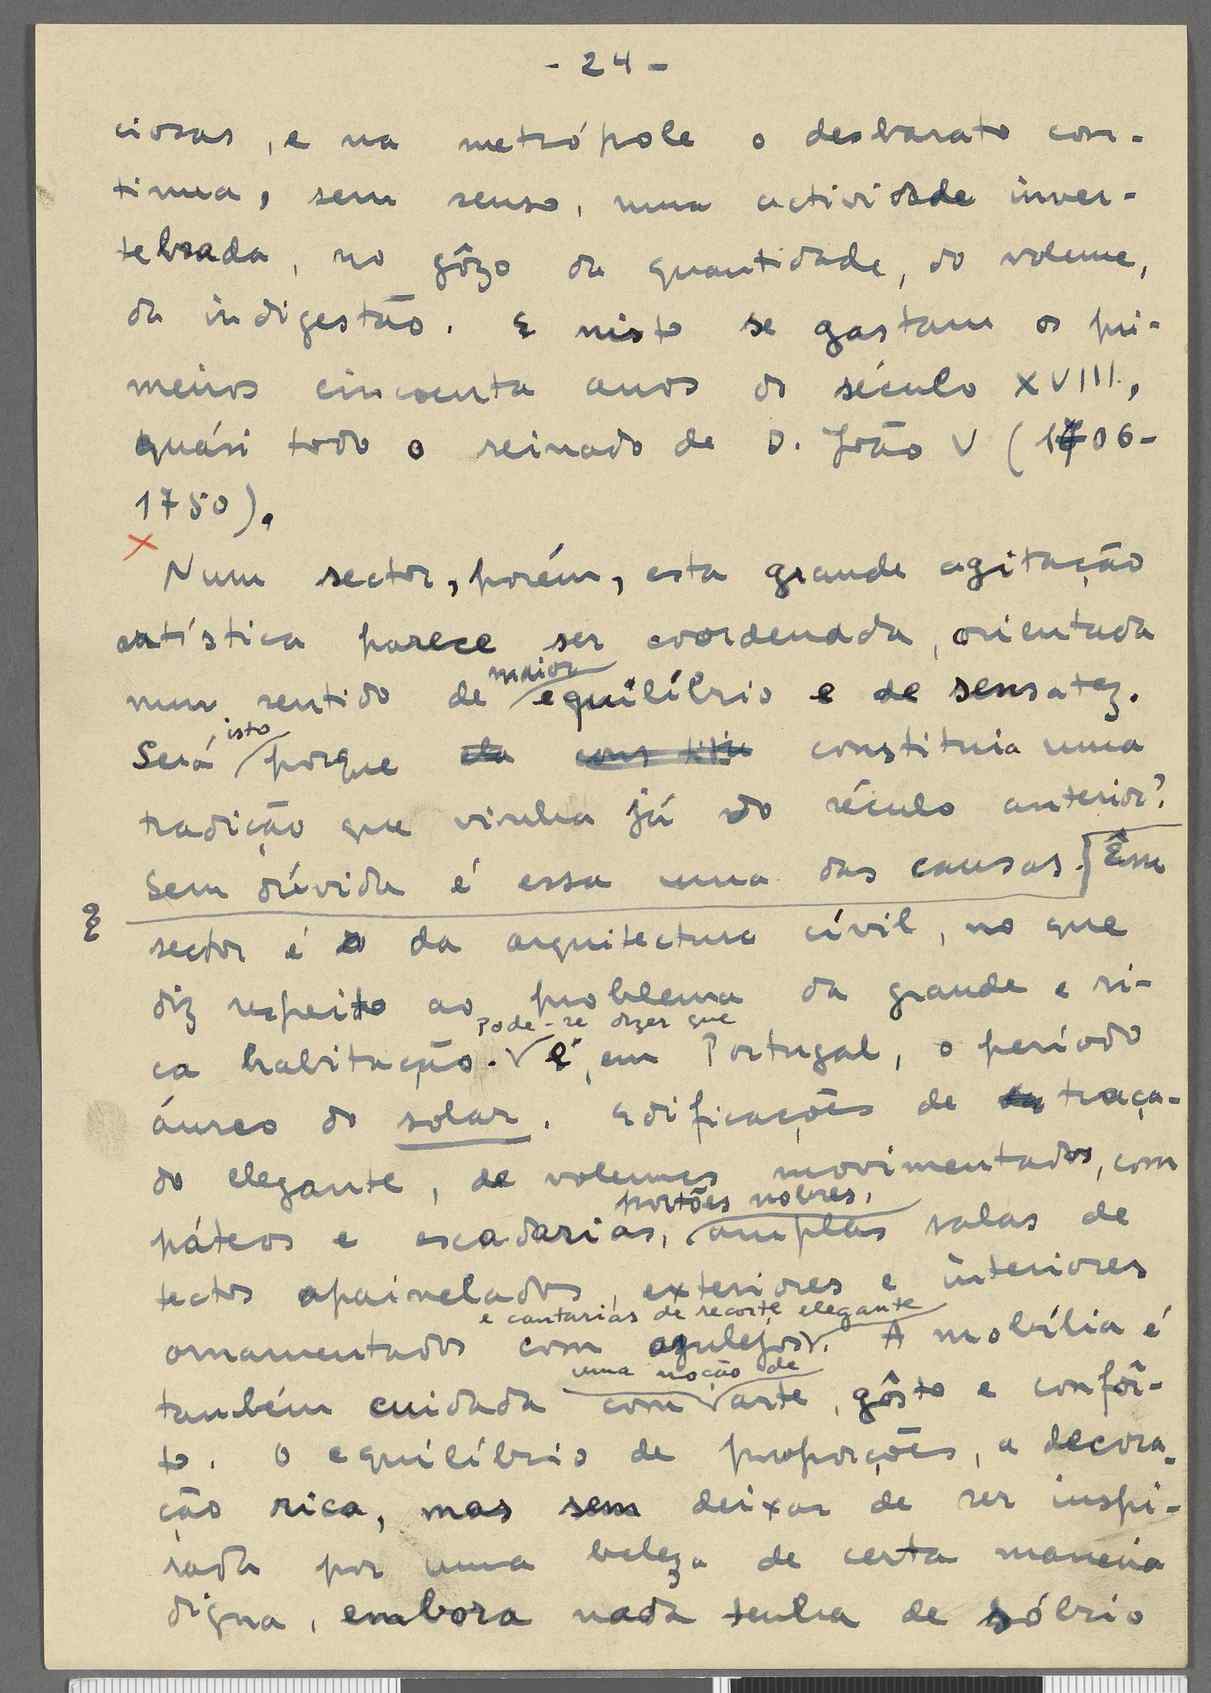 - 24 -
ciosas, e na metrópole o desbarato con-
tinua, sem senso, numa actividade inver-
tebrada, no gôzo da quantidade, do volume,
da indigestão. E nisto se gastam os pri-
meiros cincoenta anos do século XVIII,
quási todo o reinado de D. João V (1706-
1750).
x
Num sector, porém, esta grande agitação
artística parece ser coordenada, orientada
num sentido de maior equilíbrio e de sensatez.
Será isto porque ela constituia uma
tradição que vinha já do século anterior?
Sem dúvida é essa uma das causas. Êsse
sector é o da arquitectura civil, no que
diz respeito ao problema da grande e ri-
ca habitação. Pode-se dizer que é, em Portugal, o período
áureo do solar. Edificações de traça-
do elegante, de volumes movimentados, com
páteos e escadarias, portões nobres, amplas salas de
tectos apainelados, exteriores e interiores
ornamentados com azulejos e cantarias de recorte elegante. A mobília é
também cuidada com uma noção de arte, gôsto e confôr-
to. O equilíbrio de proporções, a decora-
ção rica, mas sem deixar de ser inspi-
rada por uma beleza de certa maneira
digna, embora nada tenha de sóbrio